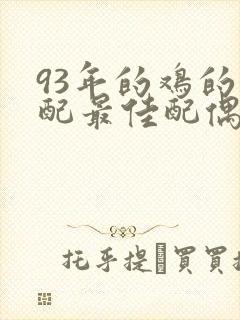 93年的鸡的
配最佳配偶
托乎提·買買提